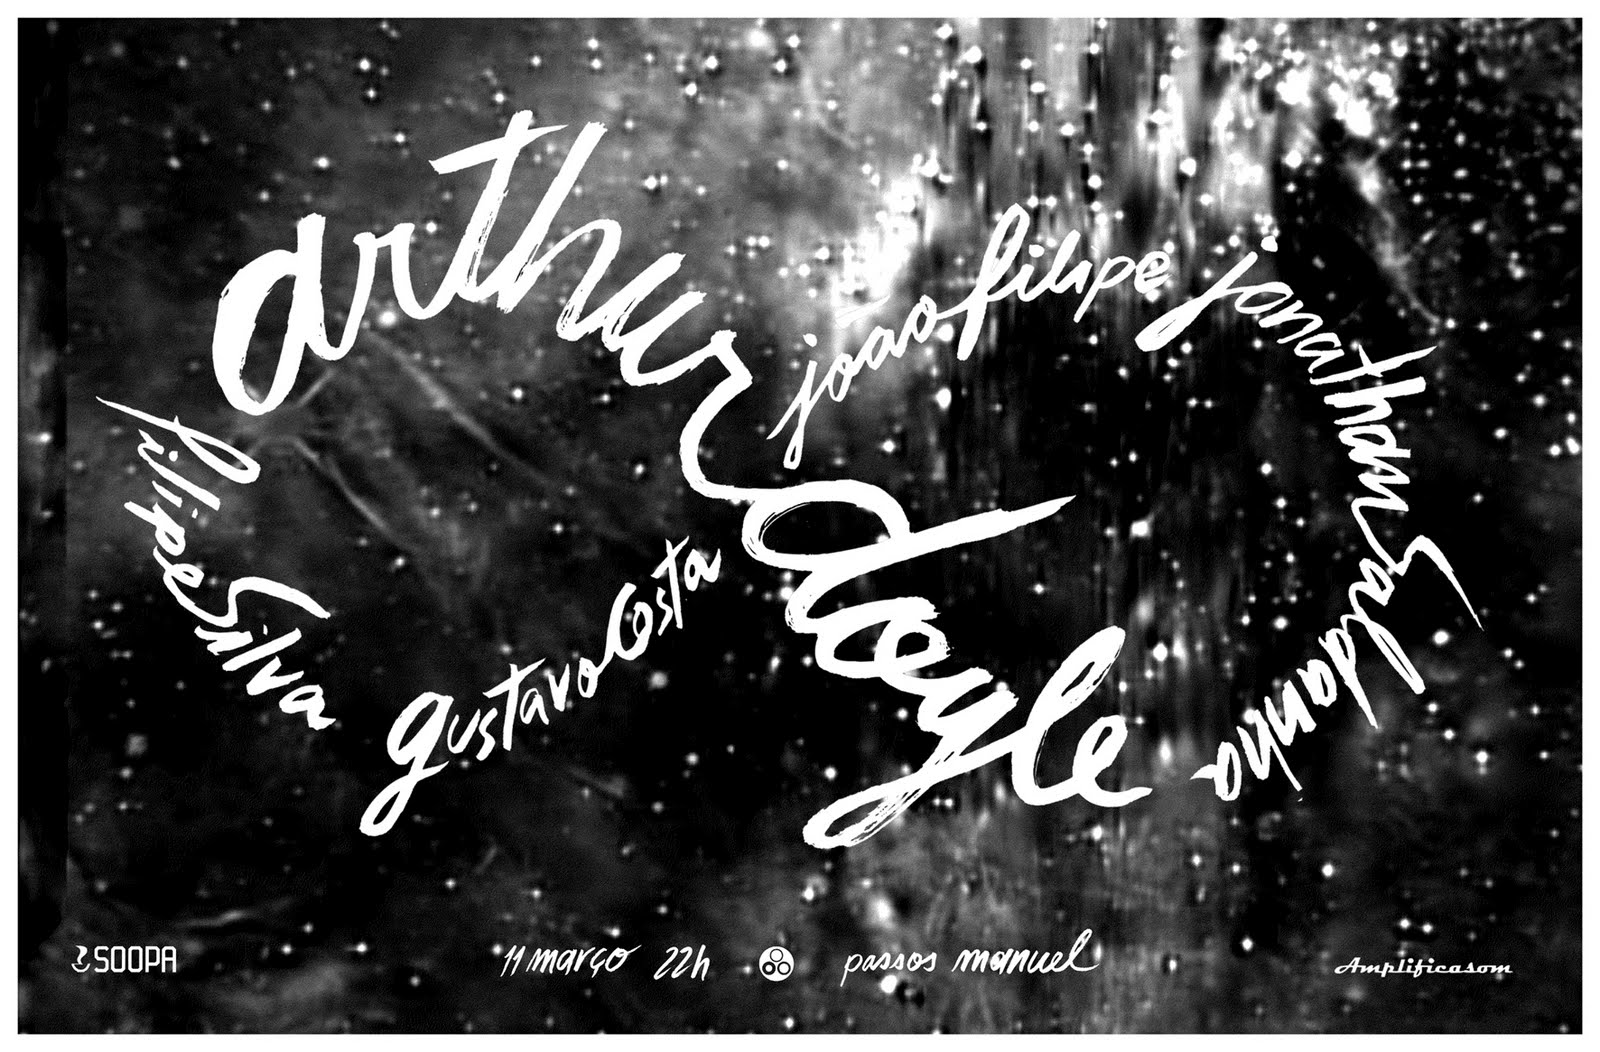 arthur doyle
joão filipe
jonathan saldanha
gustavo costa
filipe silva
SOOPA
11 março 22h
passos manuel
Amplificasom